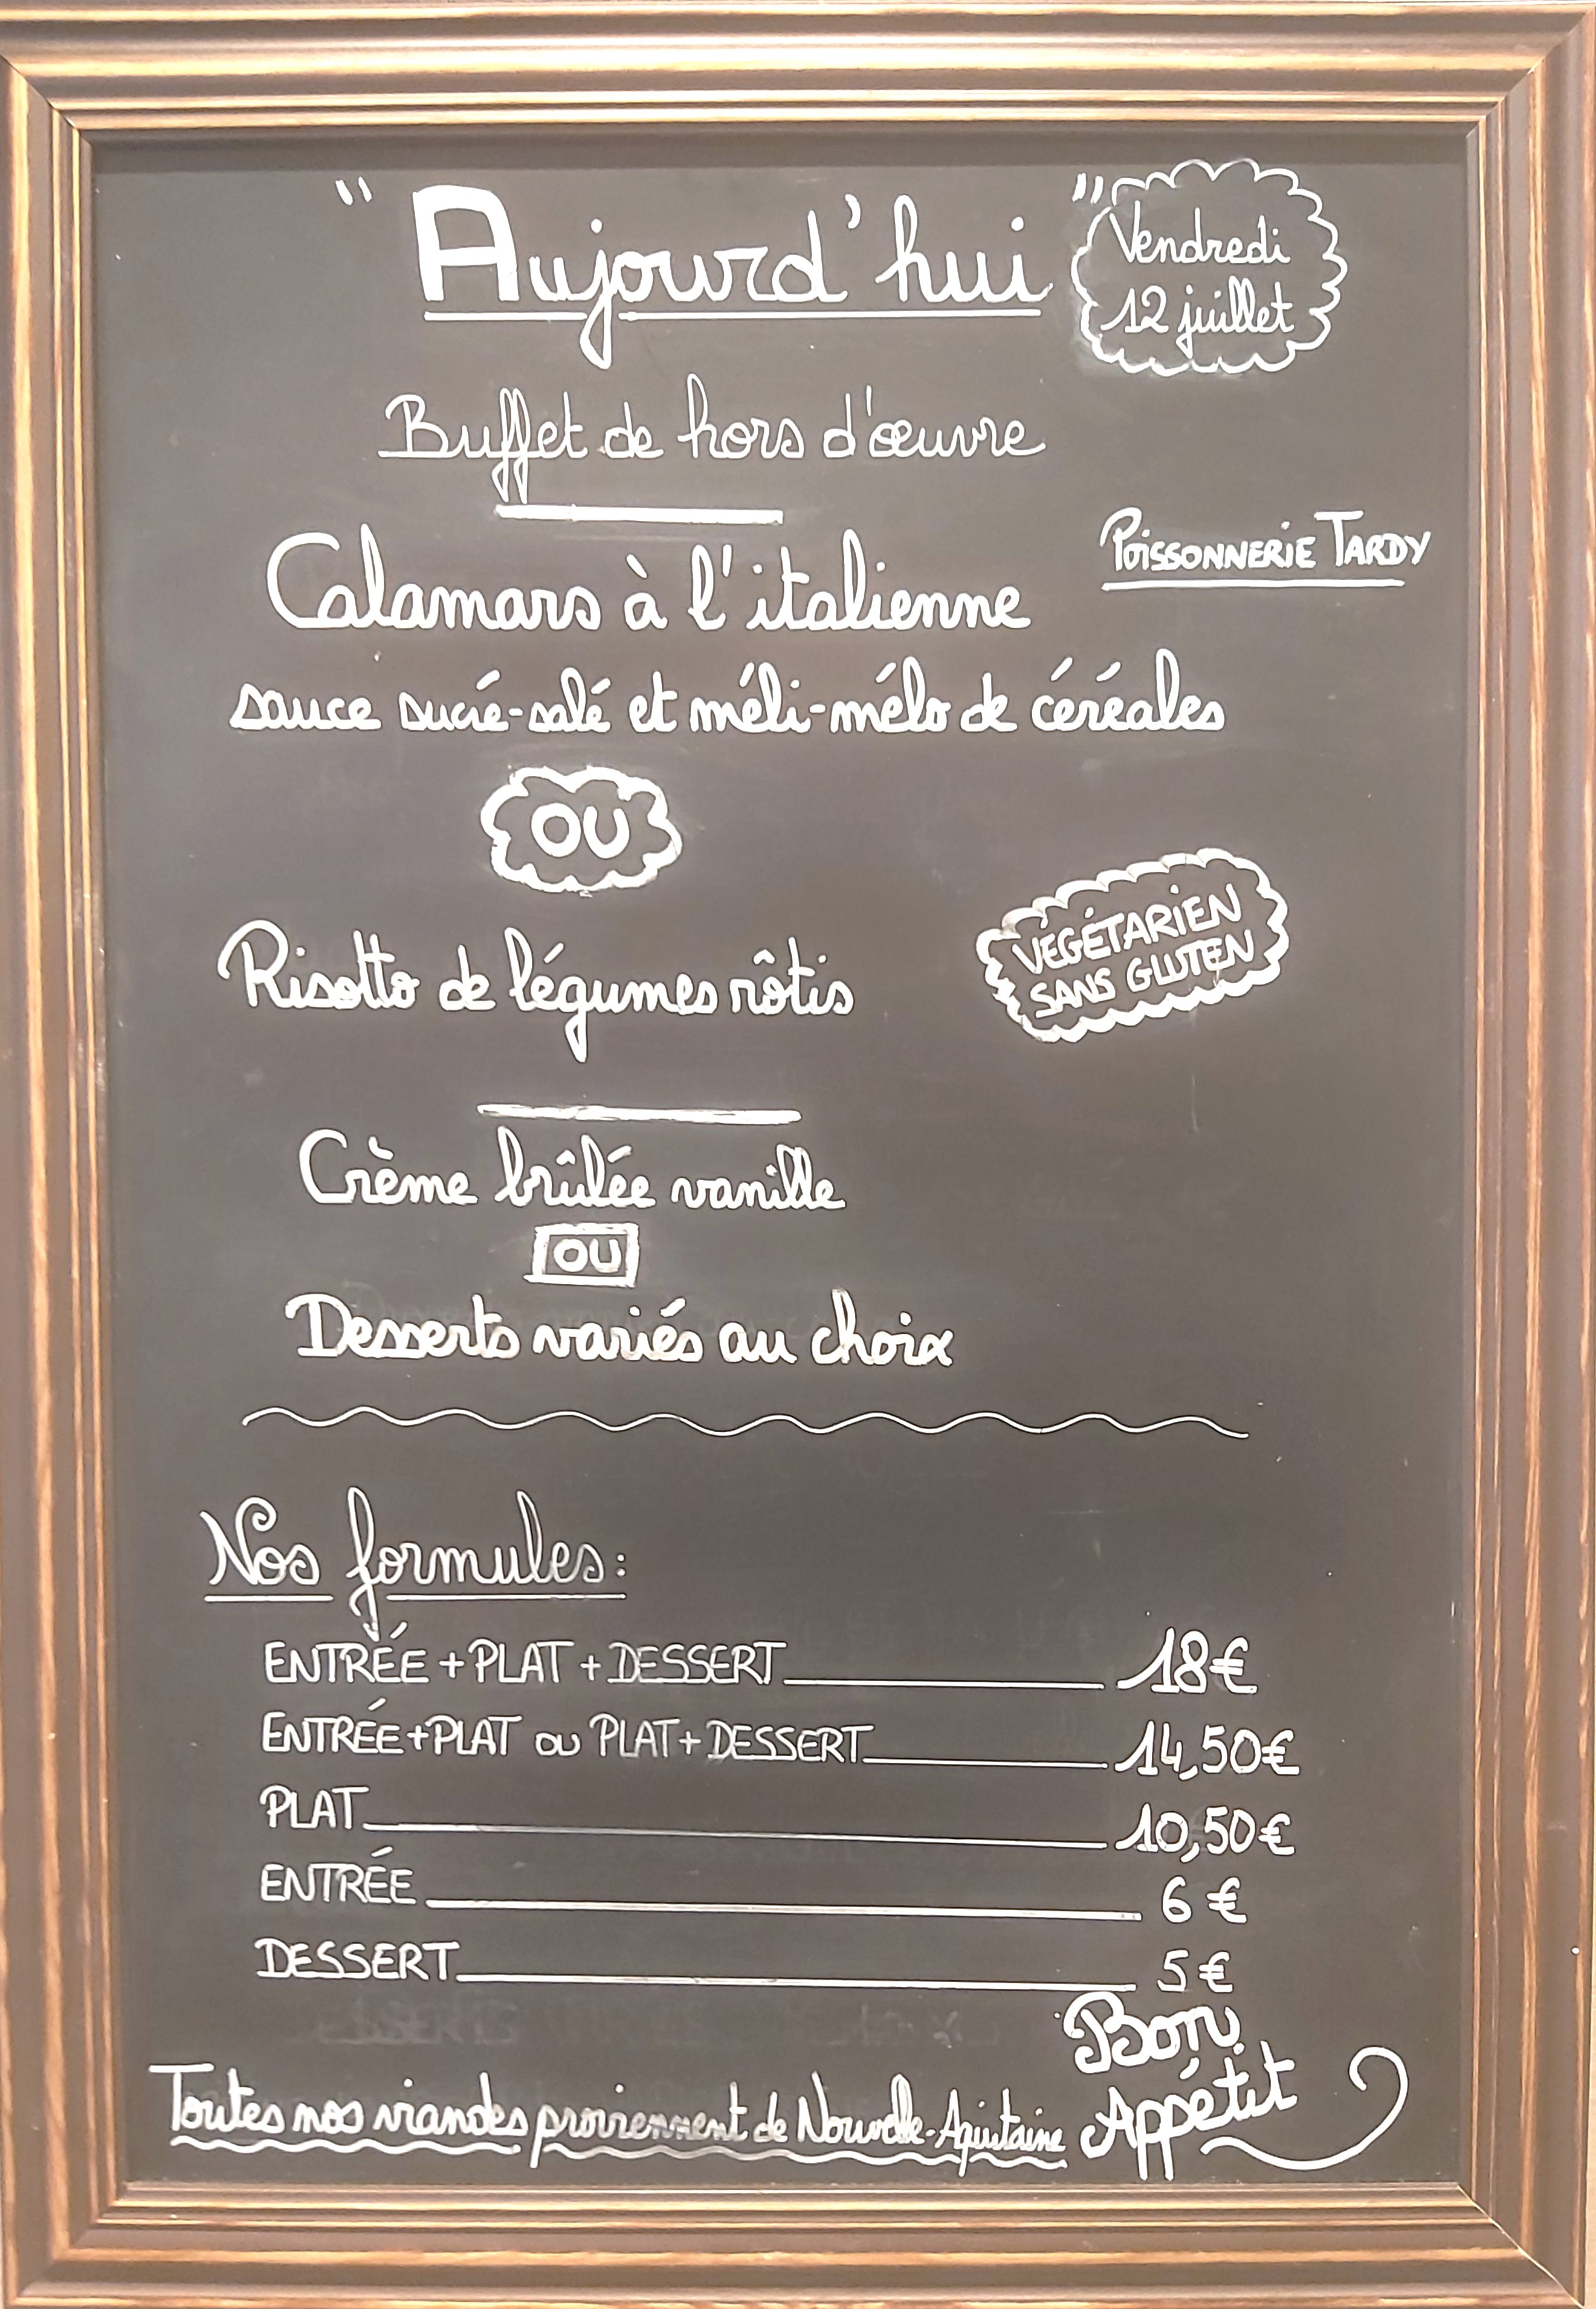 "Aujourd'hui"
Vendredi
12 juillet
Buffet de hors d'œuvre
Poissonnerie Tardy
Calamars à l'italienne
sauce sucré-salé et méli-mélo de céréales
OU
VÉGÉTARIEN
SANS GLUTEN
Risotto de légumes rôtis
Crème brûlée vanille
OU
Desserts variés au choix
Nos formules:
ENTRÉE + PLAT + DESSERT 18€
ENTRÉE+PLAT ou PLAT+DESSERT 14,50€
PLAT 10,50€
ENTRÉE 6 €
DESSERT 5 €
Bon
Appétit
Toutes nos viandes proviennent de Nouvelle-Aquitaine